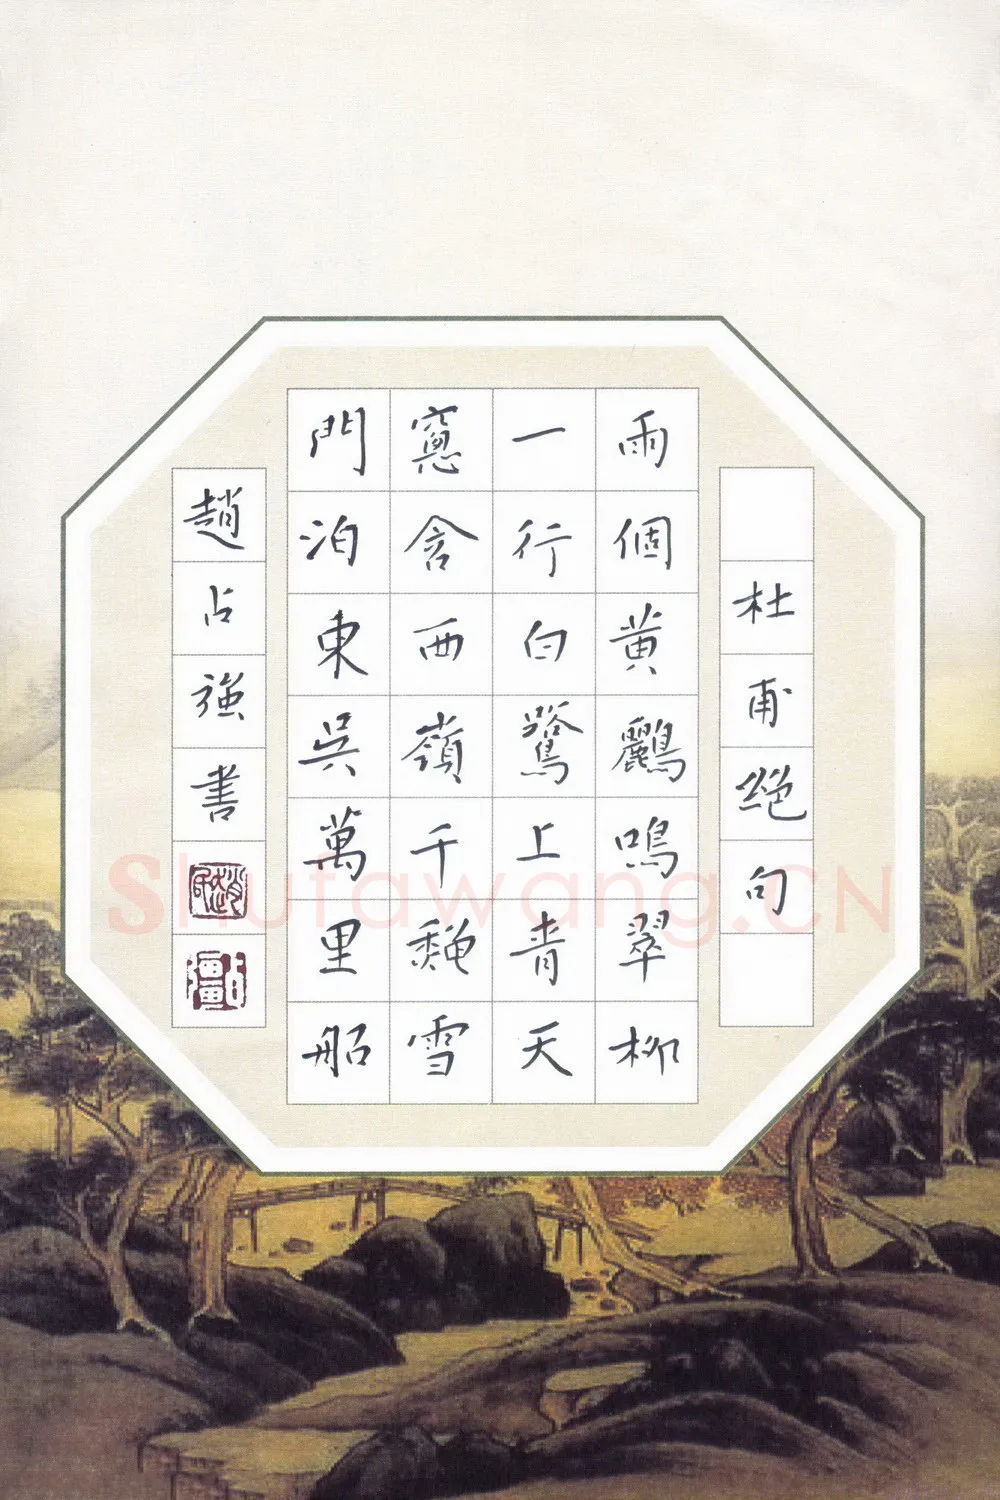 杜甫絕句
兩個黃鸝鳴翠柳
一行白鷺上青天
窻含西嶺千穐雪
門泊東吳萬里船
趙占強書
占彊
Shufawang.CN